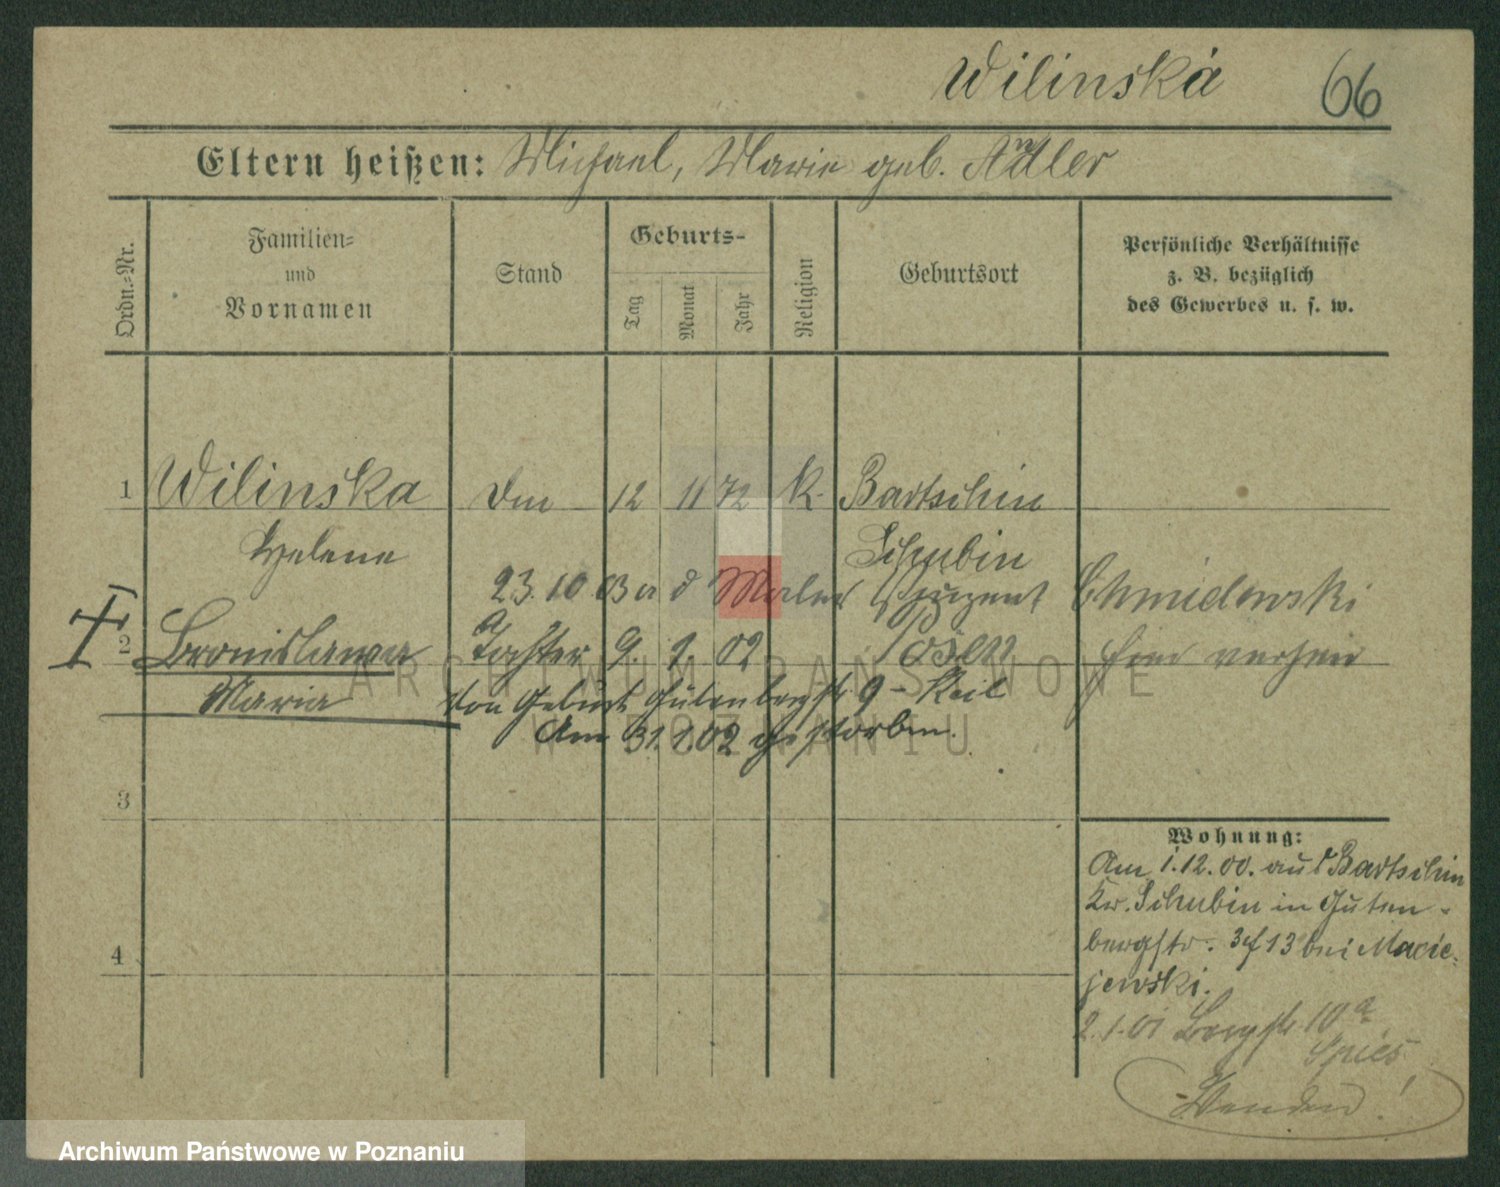 Wilinska 66
Eltern heißen: Michael, Marie geb. Adler
Ordn.=Nr.
Familien=
und
Vornamen
Stand
Geburts-
Tag
Monat
Jahr
Religion
Geburtsort
Persönliche Verhältnisse
z. B. bezüglich
des Gewerbes u. s. w.
1 Wilinska 12 11 72 K. Bartschin
Helene Schubin
23. 10. 03 Maler Vinzent Chmielewski
2 Bronislawa Tochter 9. 1. 02 Posen hier verheir
Maria von Geburt Gutenbergstr. 9 - Keil
Am 31.1.02 gestorben.
3
4
Wohnung:
Am 1.12.00. aus Bartschin
Kr. Schubin in Guten-
bergstr. 13 bei Macie-
jewski.
2.1.01 Bergstr. 10a
Spies
Wenden!
ARCHIWUM PAŃSTWOWE
W POZNANIU
Archiwum Państwowe w Poznaniu